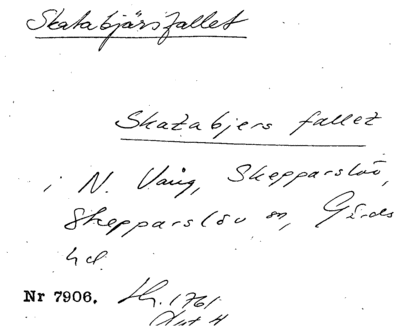 Skatabjärsfallet
Skatabjers fallet
i N. Vång, Skepparslöv,
Skepparslöv sn, Gärds
hd.
Nr 7906. 1761.